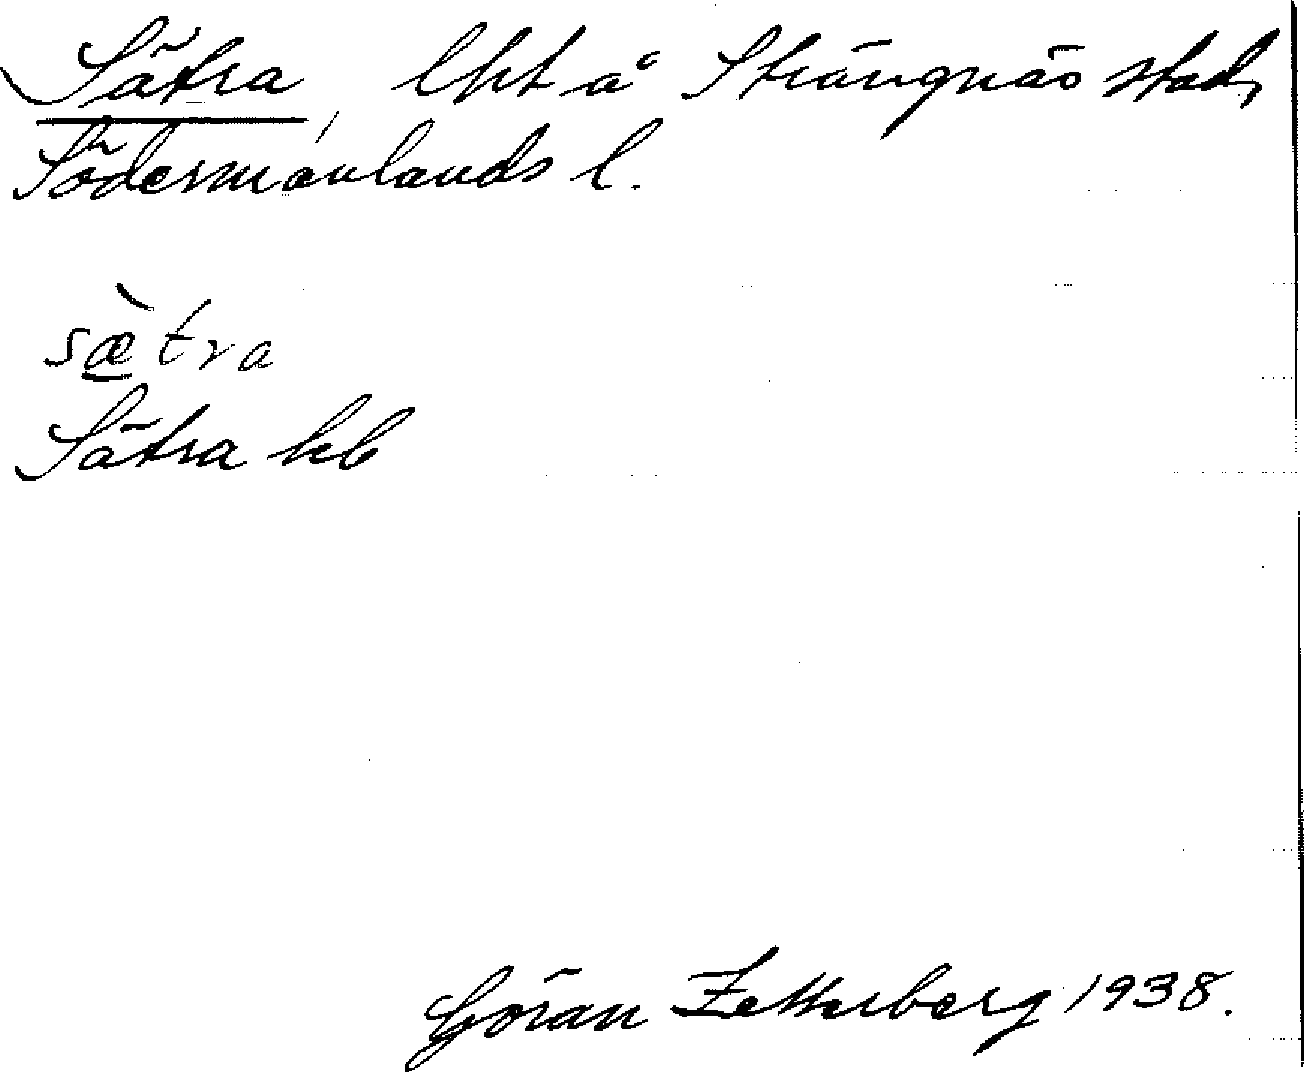 Sätra, lht å Strängnäs stad,
Södermanlands l.
sæ̀tra
Sätra kb
Göran Zetterberg 1938.